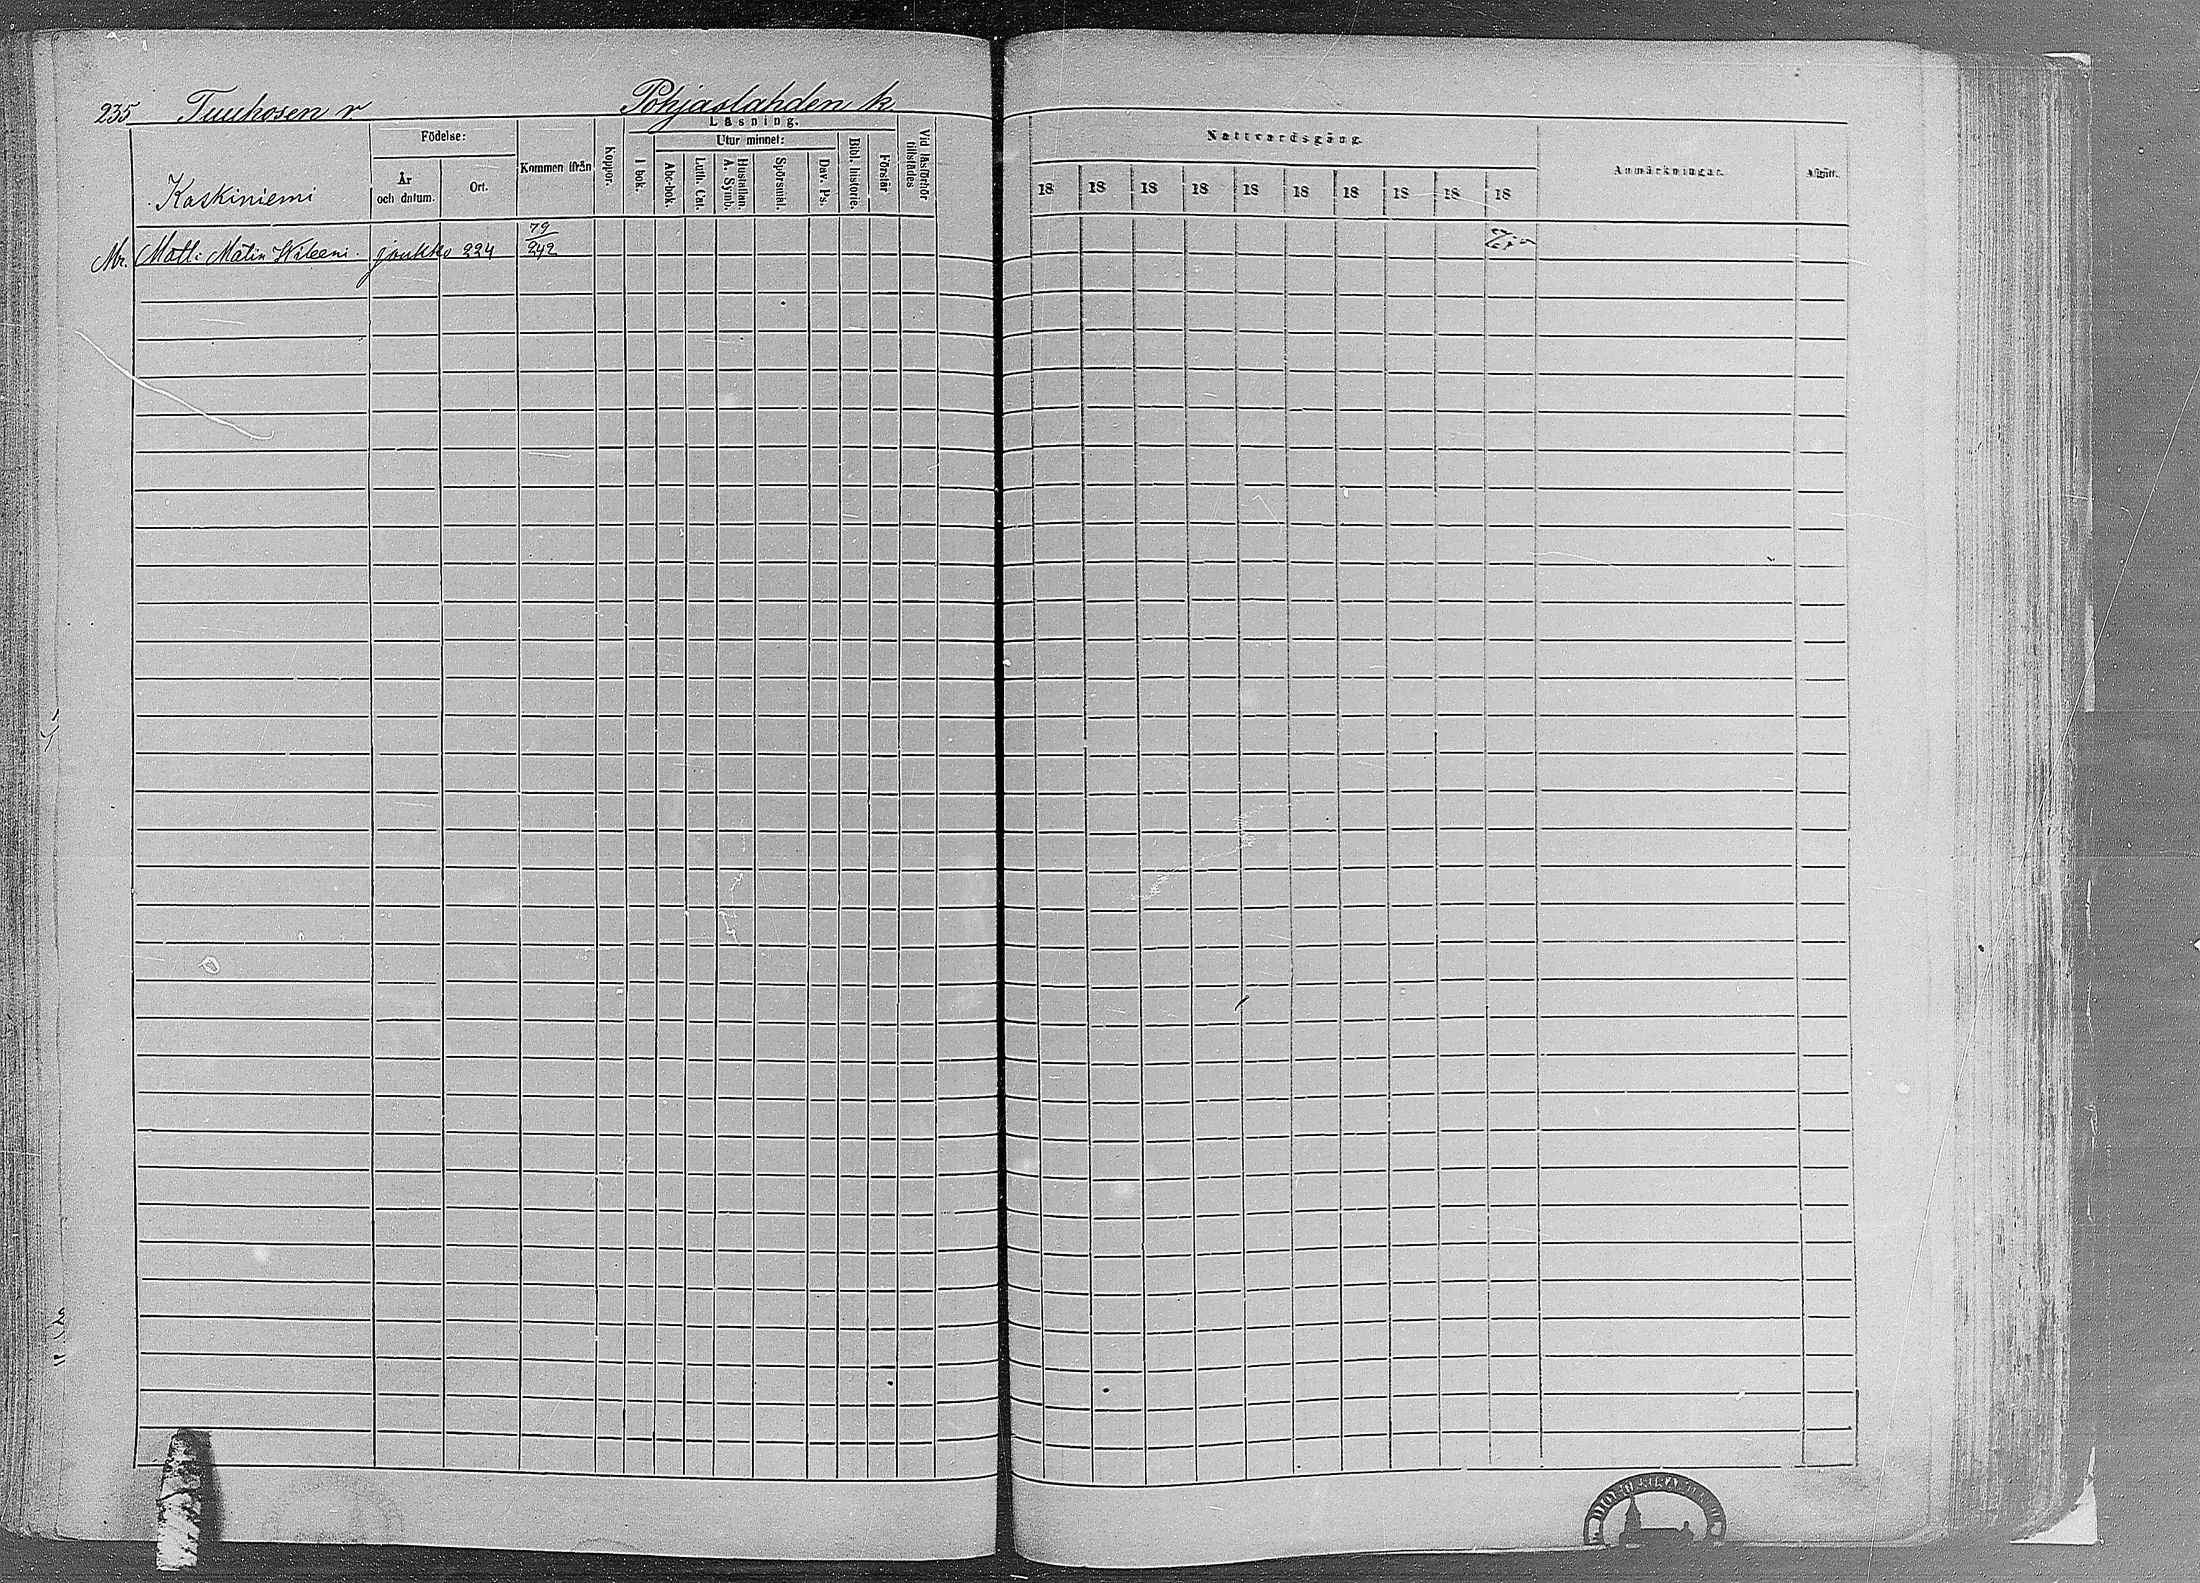 235 Tuuhosen r Pohjaslahden k.
Läsning.
Födelse: Kommen ifrån Koppor. I bok. Utur minnet: Bibl. historie. Förstår Vid läsförhör tillstädes Nattvardsgång. Anmärkningar. Afgått.
År och datum. Ort. Abc-bok. Luth. Cat. Hustaflan. A. Symb. Spörsmål. Dav. Ps.
18 18 18 18 18 18 18 18 18 18
Kaskiniemi
79
Mr. Matin joukko 224 242